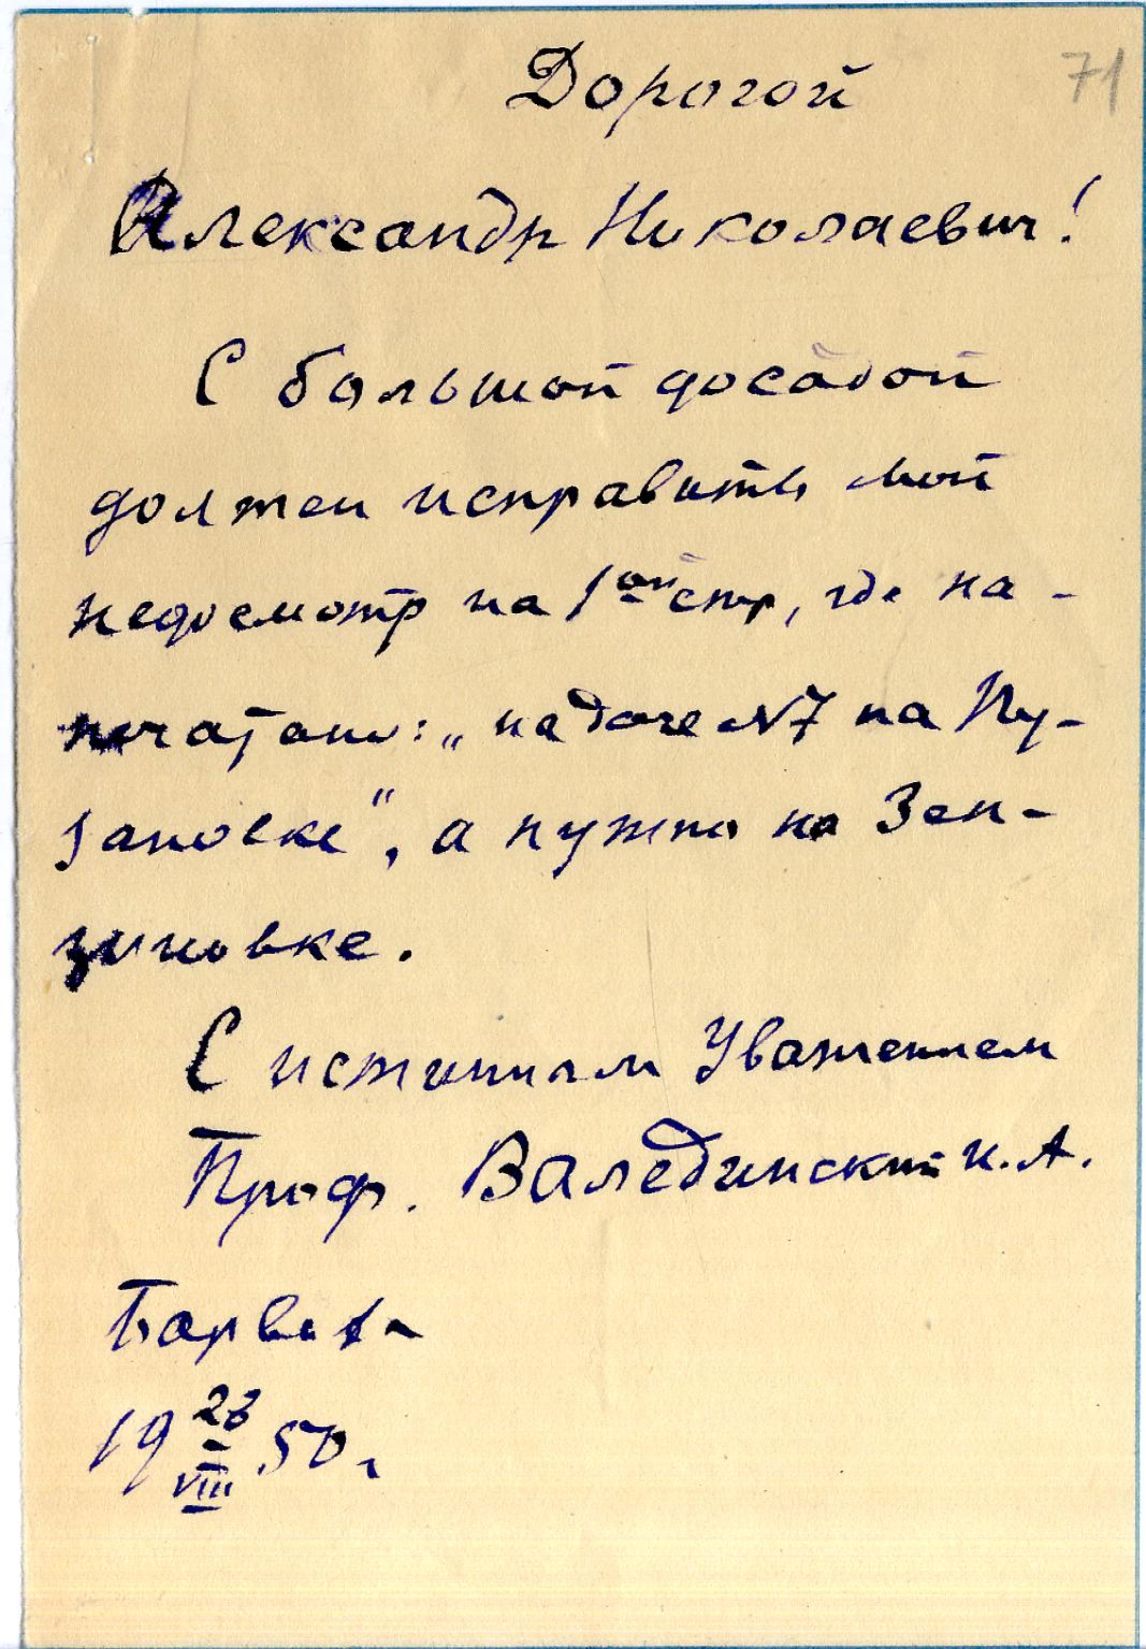 71
Дорогой
Александр Николаевич!
С большой досадой
должен исправить мой
недосмотр на 1ой стр, где на-
печатано: „на даче N7 на Пу-
зановке", а нужно на Зен-
зиновке.
С истинным Уважением
Проф. Валединский И.А.
Барвиха
19 28/VIII 50 г.